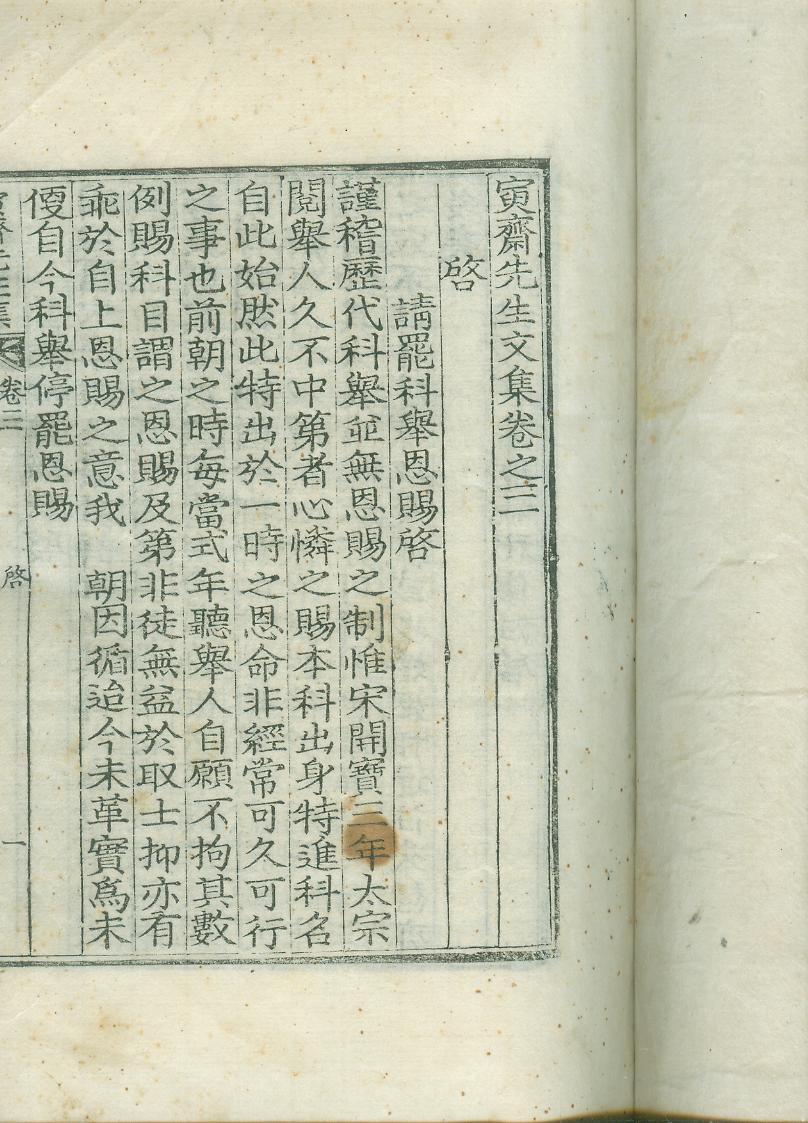 寅齋先生文集卷之三
啓
請罷科舉恩賜啓
謹稽歷代科舉並無恩賜之制惟宋開寶三年太宗
閱舉人久不中第者心憐之賜本科出身特進科名
自此始然此特出於一時之恩命非經常可久可行
之事也前朝之時每當式年聽舉人自願不拘其數
例賜科目謂之恩賜及第非徒無益於取士抑亦有
乖於自上恩賜之意我 朝因循迨今未革實爲未
便自今科舉停罷恩賜
寅齋先生集 卷三 啓 一